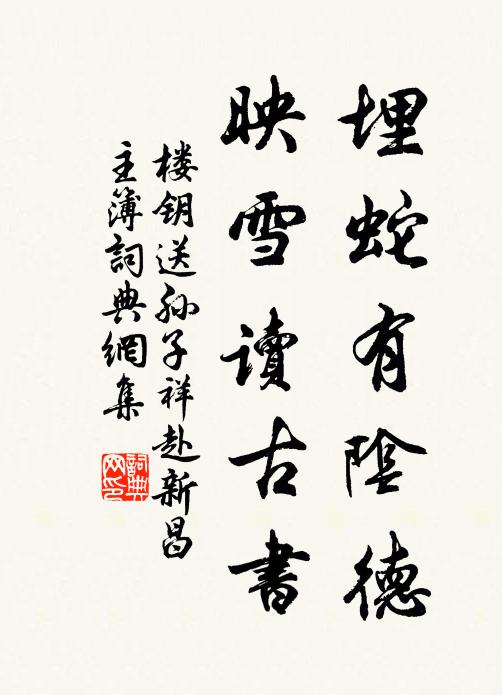 埋蛇有陰德
映雪讀古書
楼钥送孙子祥赴新昌
主簿詞典網集
詞典
网印